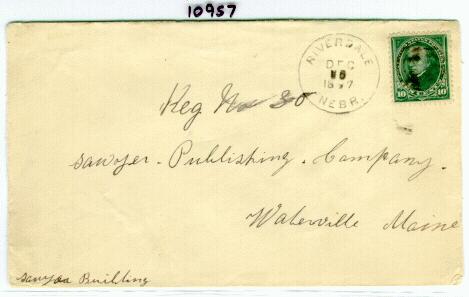 10957
RIVERDALE
DEC
16
1897
NEBR.
10 10
Reg No 30
Sawyer. Publishing. Company.
Waterville Maine
Sawyer Building